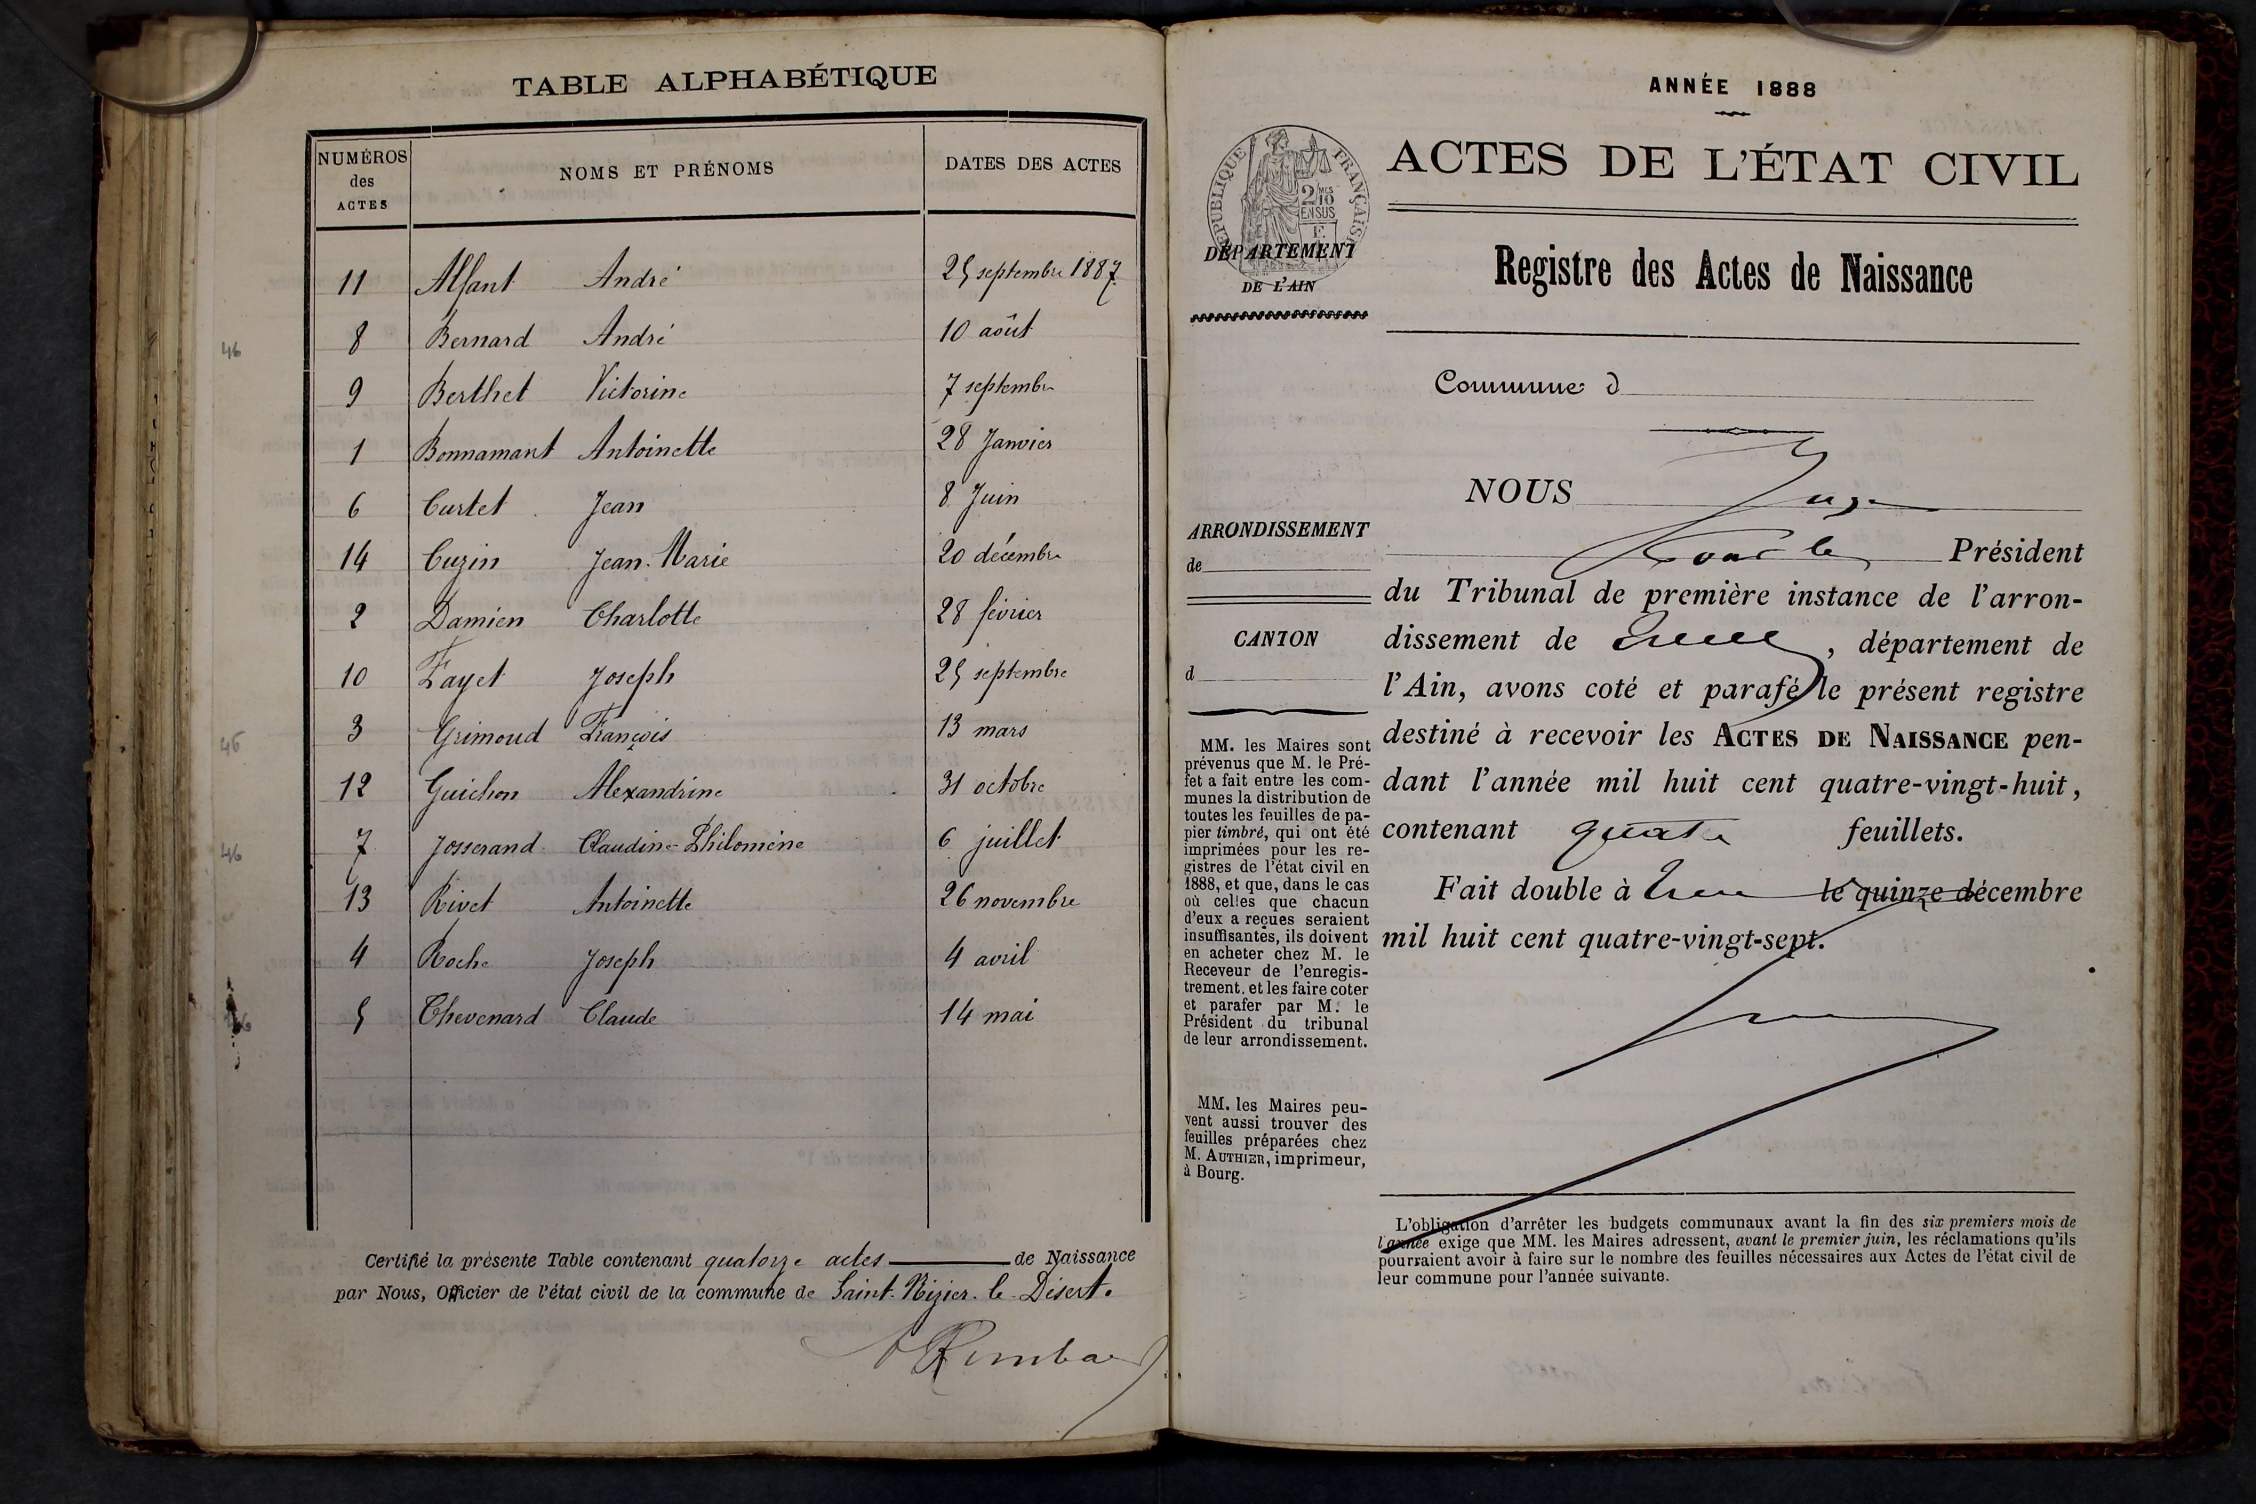 TABLE ALPHABÉTIQUE
NUMÉROS des ACTES NOMS ET PRÉNOMS DATES DES ACTES
11 Alfant André 25 septembre 1887
8 Bernard André 10 août
9 Berthet Victorine 7 septembre
1 Bonnamant Antoinette 28 Janvier
6 Curtet Jean 8 Juin
14 Cuzin Jean-Marie 20 décembre
2 Damien Charlotte 28 février
10 Fayet Joseph 25 septembre
3 Grimoud François 13 mars
12 Guichon Alexandrine 31 octobre
7 Josserand Claudine-Philomène 6 juillet
13 Rivet Antoinette 26 novembre
4 Roche Joseph 4 avril
5 Thevenard Claude 14 mai
46
46
46
46
Certifié la présente Table contenant quatorze actes de Naissance
par Nous, Officier de l'état civil de la commune de Saint-Nizier-le-Désert.
ANNÉE 1888
RÉPUBLIQUE FRANÇAISE
2/10 EN SUS
DÉPARTEMENT
DE L'AIN
ACTES DE L'ÉTAT CIVIL
Registre des Actes de Naissance
Commune d
ARRONDISSEMENT
de
CANTON
d
MM. les Maires sont
prévenus que M. le Pré-
fet a fait entre les com-
munes la distribution de
toutes les feuilles de pa-
pier timbré, qui ont été
imprimées pour les re-
gistres de l'état civil en
1888, et que, dans le cas
où celles que chacun
d'eux a reçues seraient
insuffisantes, ils doivent
en acheter chez M. le
Receveur de l'enregis-
trement. et les faire coter
et parafer par M. le
Président du tribunal
de leur arrondissement.
MM. les Maires peu-
vent aussi trouver des
feuilles préparées chez
M. AUTHIER, imprimeur,
à Bourg.
NOUS Juge
Président
du Tribunal de première instance de l'arron-
dissement de , département de
l'Ain, avons coté et parafé le présent registre
destiné à recevoir les ACTES DE NAISSANCE pen-
dant l'année mil huit cent quatre-vingt-huit,
contenant quatre feuillets.
Fait double à le quinze décembre
mil huit cent quatre-vingt-sept.
L'obligation d'arrêter les budgets communaux avant la fin des six premiers mois de
l'année exige que MM. les Maires adressent, avant le premier juin, les réclamations qu'ils
pourraient avoir à faire sur le nombre des feuilles nécessaires aux Actes de l'état civil de
leur commune pour l'année suivante.